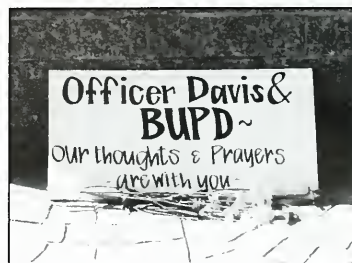 Officer Davis &
BUPD~
Our thoughts & Prayers
- are with you -